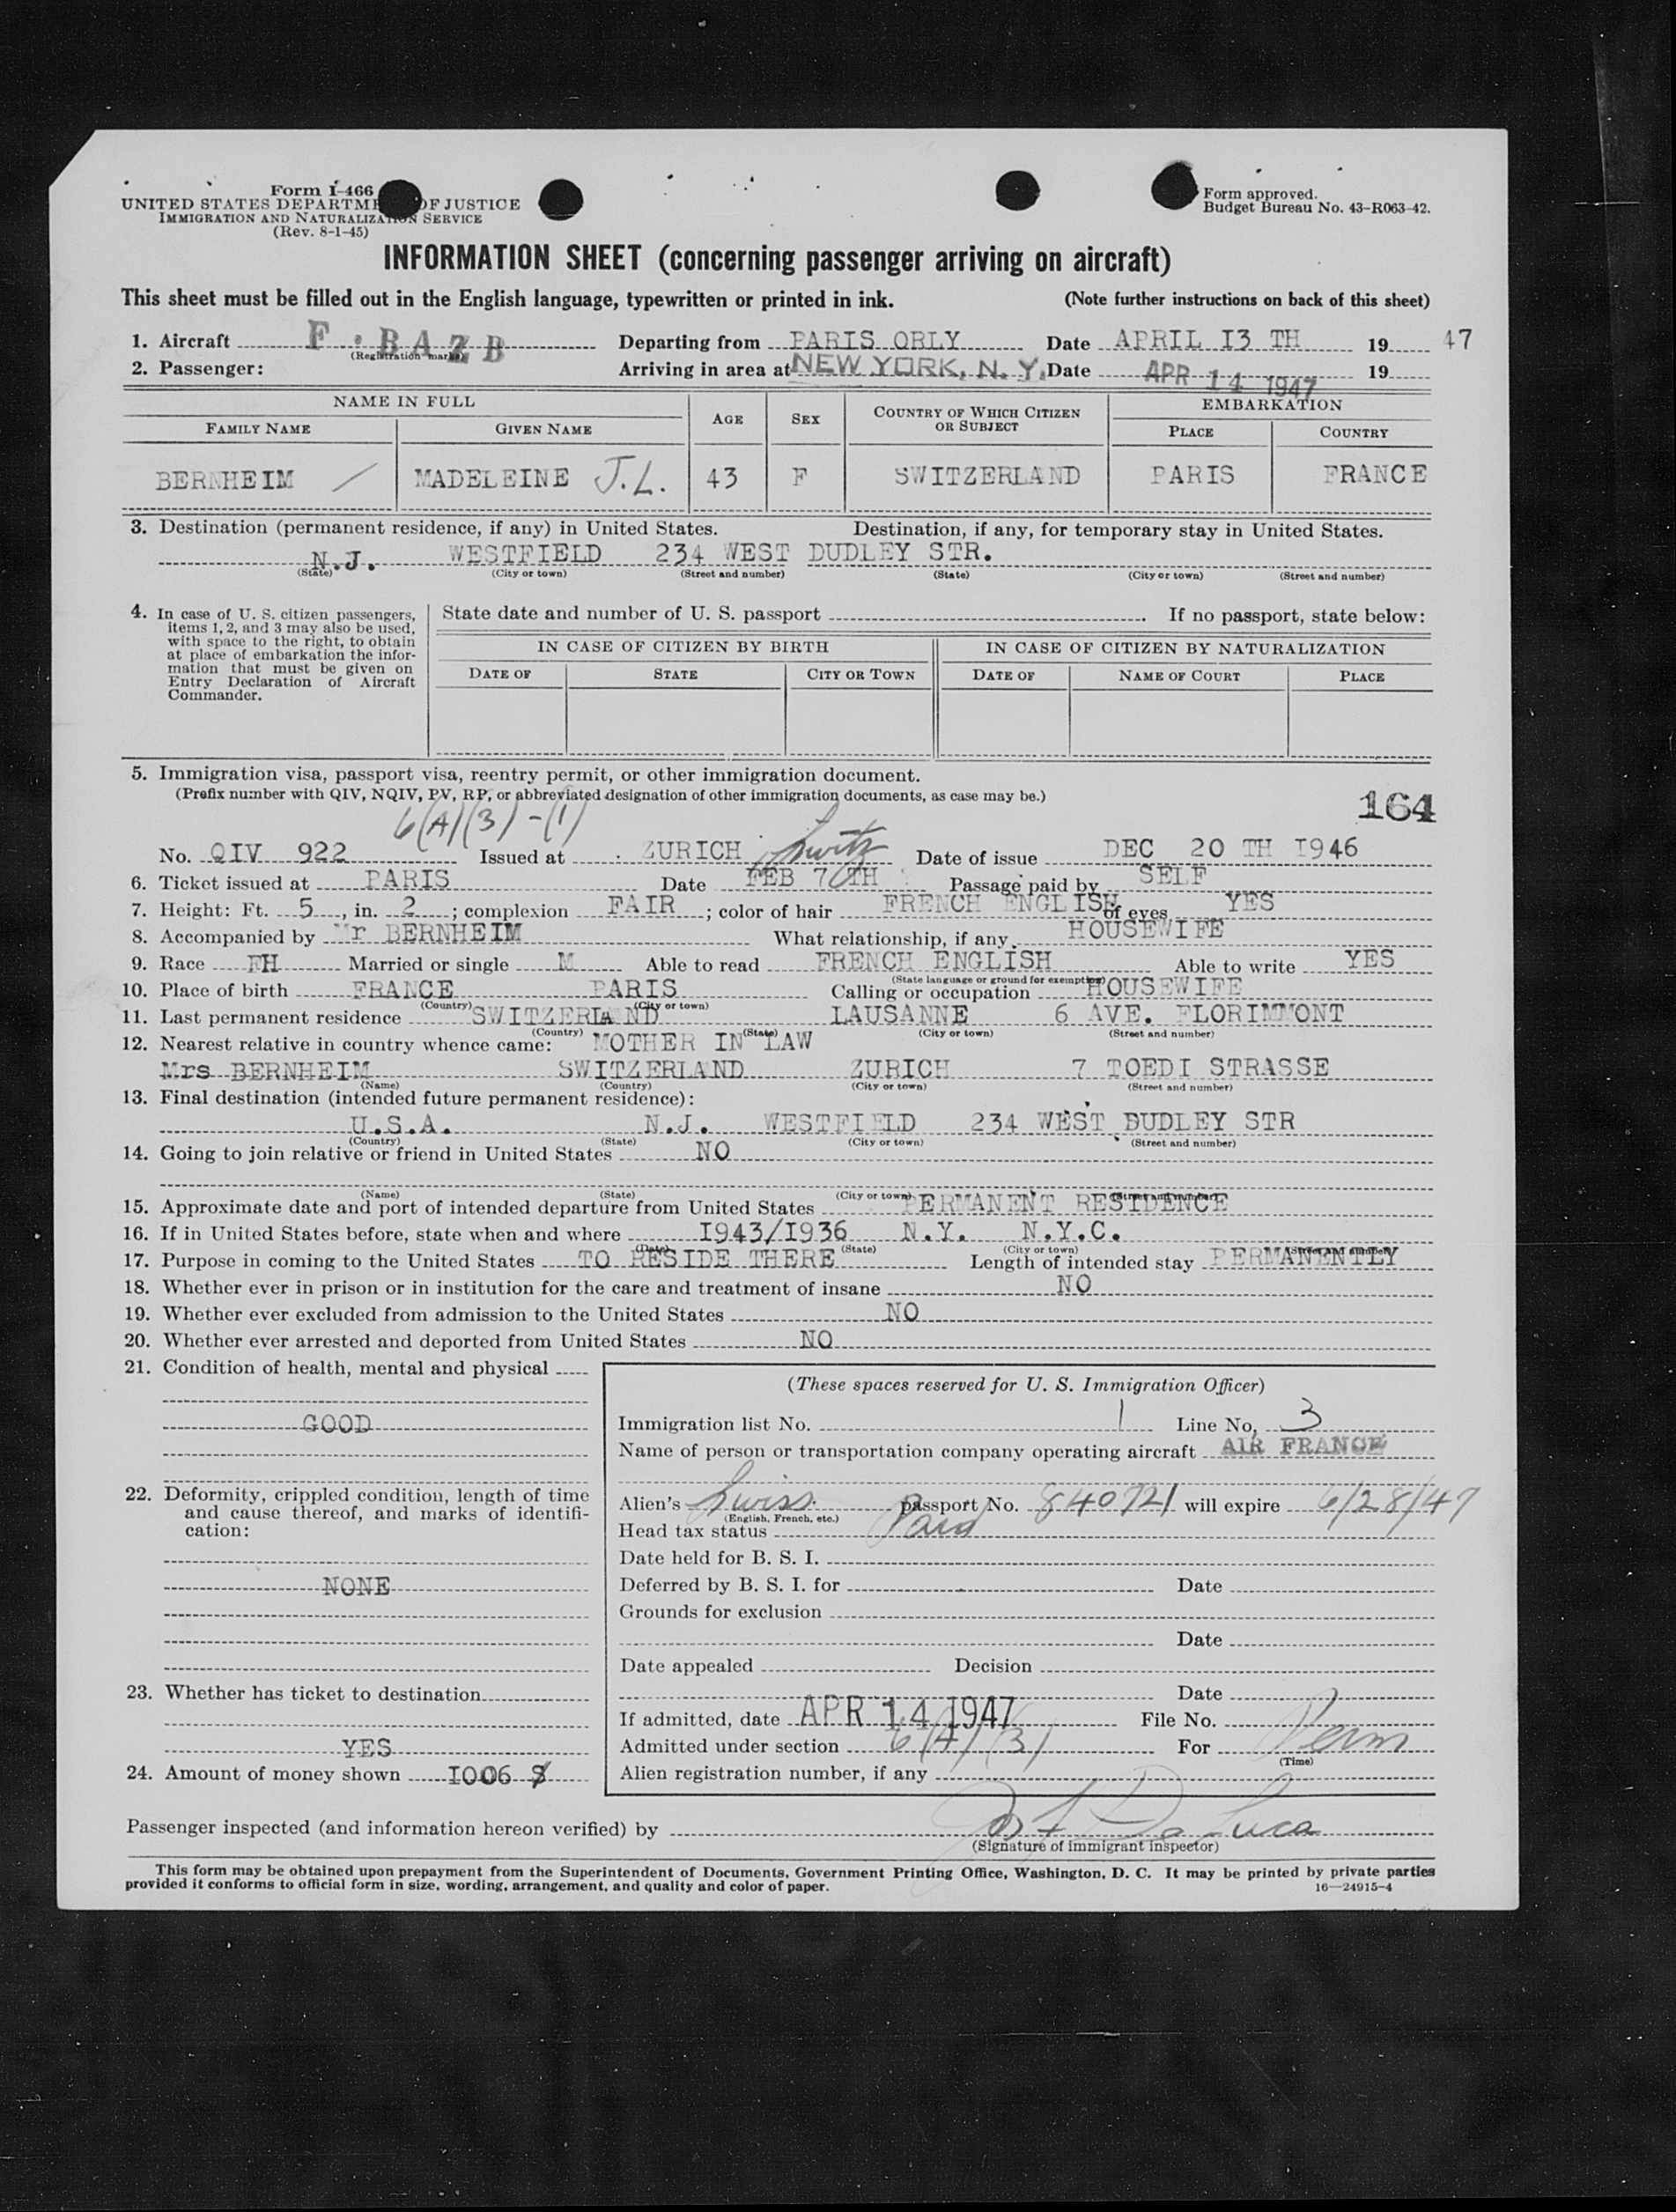 Form I-466
UNITED STATES DEPARTME OF JUSTICE
IMMIGRATION AND NATURALIZATION SERVICE
(Rev. 8-1-45)
Form approved.
Budget Bureau No. 43-R063-42.
INFORMATION SHEET (concerning passenger arriving on aircraft)
This sheet must be filled out in the English language, typewritten or printed in ink. (Note further instructions on back of this sheet)
1. Aircraft F.BAZB Departing from PARIS ORLY Date APRIL I3 TH 19 47
(Registration marks)
2. Passenger: Arriving in area at NEW YORK, N. Y. Date APR 14 1947 19
NAME IN FULL AGE SEX COUNTRY OF WHICH CITIZEN OR SUBJECT EMBARKATION
FAMILY NAME GIVEN NAME PLACE COUNTRY
BERNHEIM / MADELEINE J.L. 43 F SWITZERLAND PARIS FRANCE
3. Destination (permanent residence, if any) in United States. Destination, if any, for temporary stay in United States.
N.J. WESTFIELD 234 WEST DUDLEY STR.
(State) (City or town) (Street and number) (State) (City or town) (Street and number)
4. In case of U. S. citizen passengers, items 1, 2, and 3 may also be used, with space to the right, to obtain at place of embarkation the information that must be given on Entry Declaration of Aircraft Commander.
State date and number of U. S. passport . If no passport, state below:
IN CASE OF CITIZEN BY BIRTH IN CASE OF CITIZEN BY NATURALIZATION
DATE OF STATE CITY OR TOWN DATE OF NAME OF COURT PLACE
5. Immigration visa, passport visa, reentry permit, or other immigration document.
(Prefix number with QIV, NQIV, PV, RP, or abbreviated designation of other immigration documents, as case may be.)
164
6(A)(3)-(1)
No. QIV 922 Issued at ZURICH Switz Date of issue DEC 20 TH I946
6. Ticket issued at PARIS Date FEB 7 TH Passage paid by SELF
7. Height: Ft. 5, in. 2; complexion FAIR; color of hair FRENCH ENGLISH of eyes YES
8. Accompanied by Mr BERNHEIM What relationship, if any HOUSEWIFE
9. Race FH Married or single M Able to read FRENCH ENGLISH Able to write YES
(State language or ground for exemption)
10. Place of birth FRANCE PARIS Calling or occupation HOUSEWIFE
(Country) (City or town)
11. Last permanent residence SWITZERLAND LAUSANNE 6 AVE. FLORIMMONT
(Country) (State) (City or town) (Street and number)
12. Nearest relative in country whence came: MOTHER IN LAW
Mrs BERNHEIM SWITZERLAND ZURICH 7 TOEDI STRASSE
(Name) (Country) (City or town) (Street and number)
13. Final destination (intended future permanent residence):
U.S.A. N.J. WESTFIELD 234 WEST DUDLEY STR
(Country) (State) (City or town) (Street and number)
14. Going to join relative or friend in United States NO
(Name) (State) (City or town) (Street and number)
15. Approximate date and port of intended departure from United States PERMANENT RESIDENCE
16. If in United States before, state when and where I943/I936 N.Y. N.Y.C.
(Date) (State) (City or town) (Street and number)
17. Purpose in coming to the United States TO RESIDE THERE Length of intended stay PERMANENTLY
18. Whether ever in prison or in institution for the care and treatment of insane NO
19. Whether ever excluded from admission to the United States NO
20. Whether ever arrested and deported from United States NO
21. Condition of health, mental and physical
GOOD
22. Deformity, crippled condition, length of time and cause thereof, and marks of identification:
NONE
23. Whether has ticket to destination
YES
24. Amount of money shown I006 $
(These spaces reserved for U. S. Immigration Officer)
Immigration list No. 1 Line No. 3
Name of person or transportation company operating aircraft AIR FRANCE
Alien's Swiss passport No. 840721 will expire 6/28/47
(English, French, etc.)
Head tax status Paid
Date held for B. S. I.
Deferred by B. S. I. for Date
Grounds for exclusion
Date
Date appealed Decision
Date
If admitted, date APR 14 1947 File No.
Admitted under section 6(A)(3) For Perm
(Time)
Alien registration number, if any
Passenger inspected (and information hereon verified) by De Luca
(Signature of immigrant inspector)
This form may be obtained upon prepayment from the Superintendent of Documents, Government Printing Office, Washington, D. C. It may be printed by private parties
provided it conforms to official form in size, wording, arrangement, and quality and color of paper. 16—24915-4